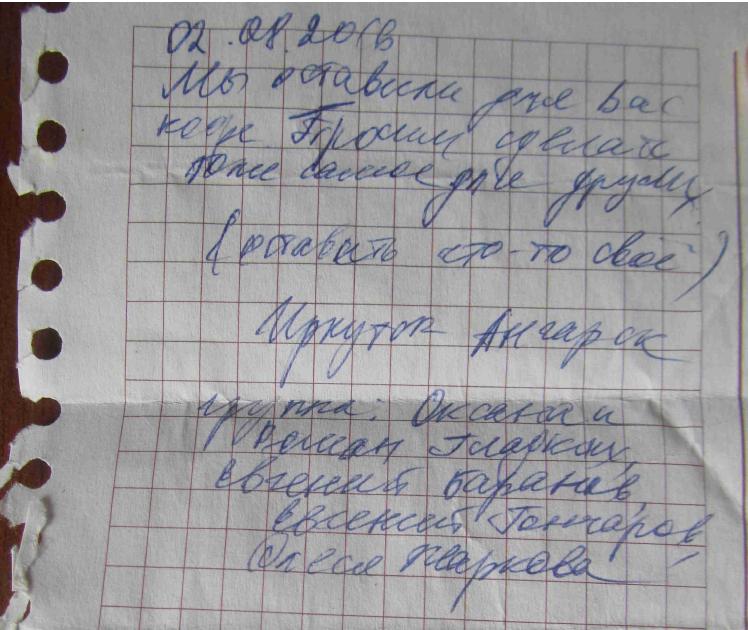 02.08.201
Мы оставили для Вас
кофе. Просим сделать
тоже самое для других
(оставить что-то своё)
Иркутск Ангарск
группа: Оксана и
Роман Гладких,
Евгений Баранов,
Евгений Гончаров,
Олеся Жаркова